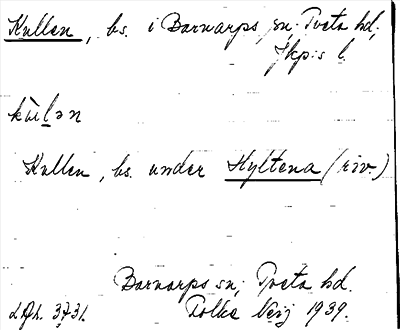 Kullen, bs. i Barnarps sn; Tveta hd;
Jkp:s l.
kùlən
Kullen, bs. under Hyltena (riv.)
Barnarps sn, Tveta hd.
Folke Veij 1939.